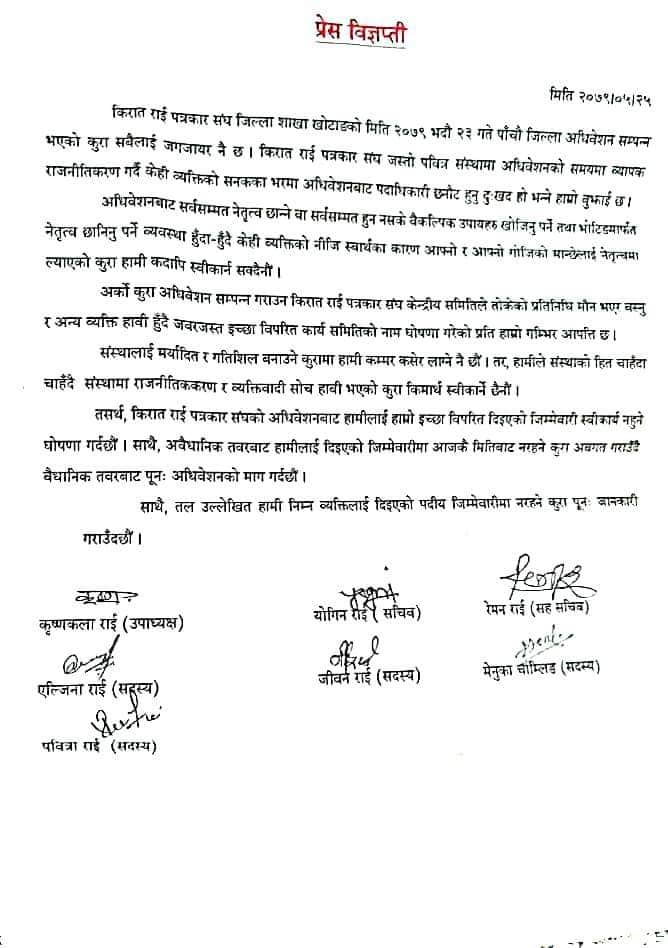 प्रेस विज्ञप्ती
मिति २०७९/०५/२५
किरात राई पत्रकार संघ जिल्ला शाखा खोटाङको मिति २०७९ भदौ २३ गते पाँचौ जिल्ला अधिवेशन सम्पन्न
भएको कुरा सबैलाई जगजायर नै छ । किरात राई पत्रकार संघ जस्तो पवित्र संस्थामा अधिवेशनको समयमा व्यापक
राजनीतिकरण गर्दै केही व्यक्तिको सनकका भरमा अधिवेशनबाट पदाधिकारी छनौट हुनु दुःखद हो भन्ने हाम्रो वुझाई छ ।
अधिवेशनबाट सर्वसम्मत नेतृत्व छान्ने वा सर्वसम्मत हुन नसके वैकल्पिक उपायहरु खोजिनु पर्ने तथा भोटिङमार्फत
नेतृत्व छानिनु पर्ने व्यवस्था हुँदा-हुँदै केही व्यक्तिको नीजि स्वार्थका कारण आफ्नो र आफ्नो गोजिको मान्छेलाई नेतृत्वमा
ल्याएको कुरा हामी कदापि स्वीकार्न सक्दैनौं ।
अर्को कुरा अधिवेशन सम्पन्न गराउन किरात राई पत्रकार संघ केन्द्रीय समितिले तोकेको प्रतिनिधि मौन भएर वस्नु
र अन्य व्यक्ति हावी हुँदै जवरजस्त इच्छा विपरित कार्य समितिको नाम घोषणा गरेको प्रति हाम्रो गम्भिर आपत्ति छ ।
संस्थालाई मर्यादित र गतिशिल बनाउने कुरामा हामी कम्मर कसेर लाग्ने नै छौं । तर, हामीले संस्थाको हित चाहँदा
चाहँदै संस्थामा राजनीतिककरण र व्यक्तिवादी सोच हावी भएको कुरा किमार्थ स्वीकार्ने छैनौं ।
तसर्थ, किरात राई पत्रकार संघको अधिवेशनबाट हामीलाई हाम्रो इच्छा विपरित दिइएको जिम्मेवारी स्वीकार्य नहुने
घोषणा गर्दछौं । साथै, अवैधानिक तवरबाट हामीलाई दिइएको जिम्मेवारीमा आजकै मितिबाट नरहने कुरा अवगत गराउँदै
वैधानिक तवरबाट पूनः अधिवेशनको माग गर्दछौं ।
साथै, तल उल्लेखित हामी निम्न व्यक्तिलाई दिइएको पदीय जिम्मेवारीमा नरहने कुरा पूनः जानकारी
गराउँदछौं ।
कृष्णकला राई (उपाध्यक्ष) योगिन राई ( सचिव) रेमन राई (सह सचिव)
एल्जिना राई (सदस्य) जीवन राई (सदस्य) मेनुका चाम्लिङ (सदस्य)
पवित्रा राई (सदस्य)